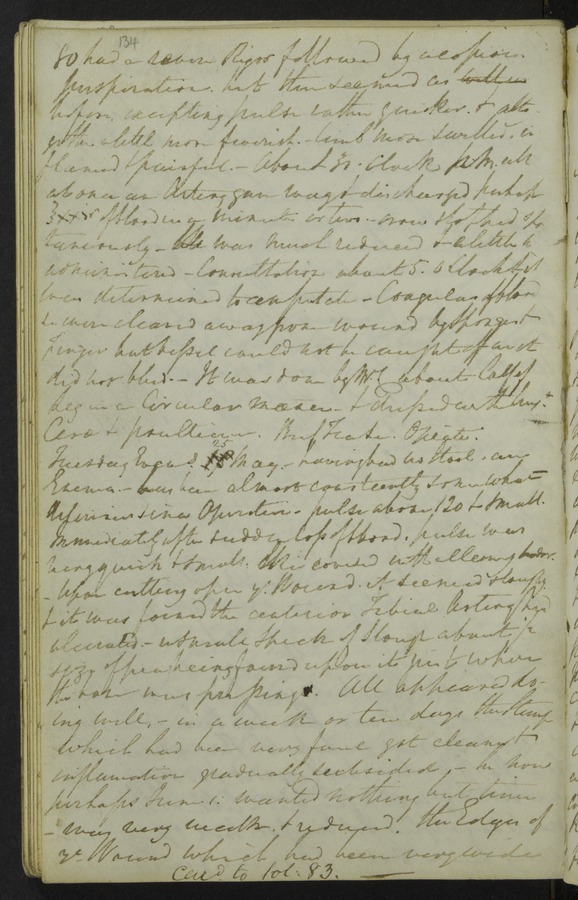 134
80 had a severe Rigor followed by a copious
perspiration. but then seemed as well as
before, excepting pulse rather quicker. & alto-
gether a littel more feverish - limb more swelled, in
flamed & painful. - About 3 o. clock P.M. all
at once an Artery gave way & discharged perhaps
of blood in a minute or two - soon stopped spon
taneously - was much reduced & a little
administered - Consultation about 5. o Clock & it
was determined to amputate - Coagulas of blood
were cleared away from wound by Sponge &
Finger but vessel could not be caught for as it
did not bleed. - It was done by Mr. about Calf of
leg in a Circular manner - & dressed with
Cerat & poultices. Beef Tea &c. Opiate.
Tuesday Evgn. 25 May - having had no stool - an
Enema. - has been almost constantly somewhat
delirious since Operation - pulse above 120 & small.
Immediately after sudden loss of blood, pulse was
very quick & small. Skin covered with
- Upon cutting open ye. Wound. it seemed sloughy
& it was found the anterior Tibial Artery had
ulcerated - a small speck of Slough about ye
size of pea being found upon it just where
the was passing. All appeared do-
ing well, - in a week or ten days the stump
which had been very foul got clean &
inflamation gradually subsided, - he now
perhaps June 1: wanted nothing but time
- was very weak & reduced. the Edges of
ye Wound which had been very wide
Card to Fol: 83.